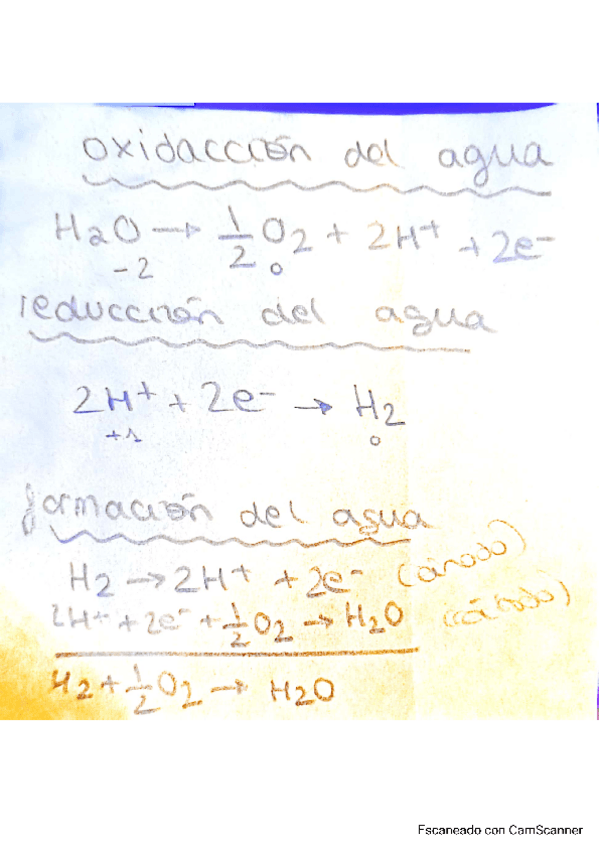 oxidacción del agua
H₂O → 1/2 O₂ + 2H⁺ + 2e⁻
-2 0
reducción del agua
2H⁺ + 2e⁻ → H₂
+1 0
formación del agua
H₂ → 2H⁺ + 2e⁻ (ánodo)
2H⁺ + 2e⁻ + 1/2 O₂ → H₂O (cátodo)
H₂ + 1/2 O₂ → H₂O
Escaneado con CamScanner